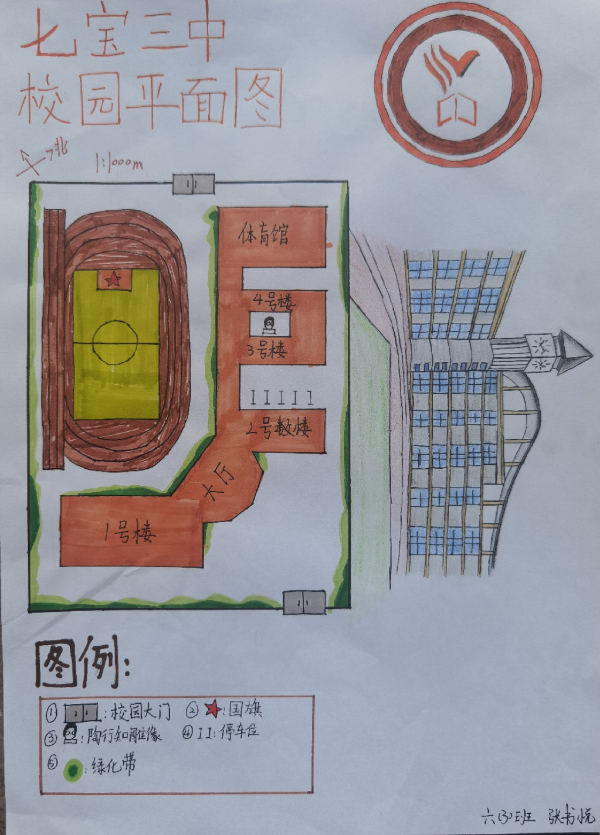 七宝三中
校园平面图
北
1:1000m
体育馆
4号楼
3号楼
2号教楼
大厅
1号楼
图例:
①:校园大门 ②:国旗
③:陶行知雕像 ④:停车位
⑤:绿化带
六(3)班 张书悦